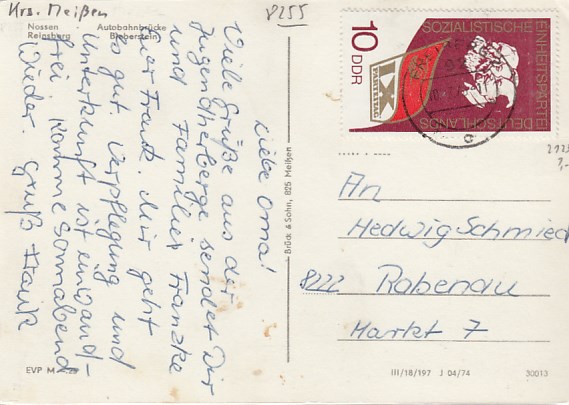 Krs. Meißen
8255
Nossen · Autobahnbrücke
Reinsberg Bieberstein
Liebe Oma!
Viele Grüße aus der
Jugendherberge sendet Dir
und Familie Franzke
Hier Frank. Mir geht
es gut. Verpflegung und
Unterkunft ist einwand-
frei. Komme Sonnabend
Wieder. Gruß
EVP M -,25
Brück & Sohn, 825 Meißen
10 DDR
SOZIALISTISCHE
EINHEITSPARTEI
DEUTSCHLANDS
IX
PARTEITAG
An
Hedwig Schmied
8222 Rabenau
Markt 7
III/18/197 J 04/74 30013